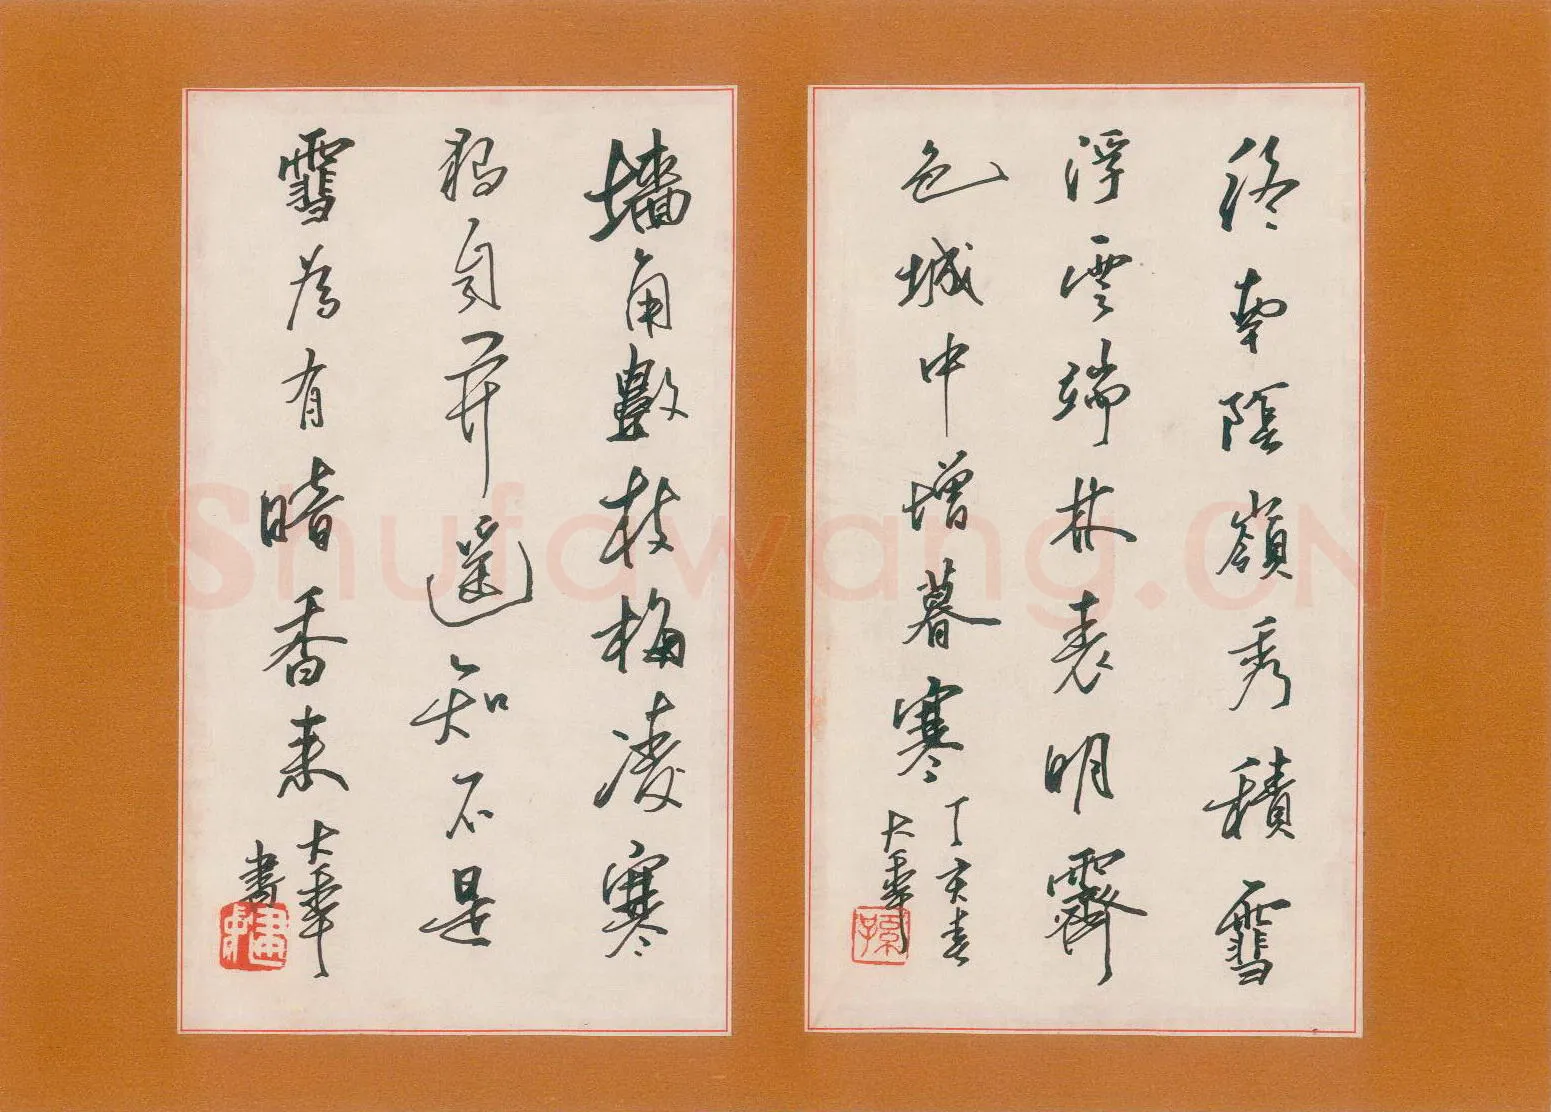 終南陰嶺秀積雪
浮雲端林表明霽
色城中增暮寒
丁亥春
大華
孫
墻角數枝梅凌寒
獨自开遥知不是
雪為有暗香来
大華
書
Shufawang.CN